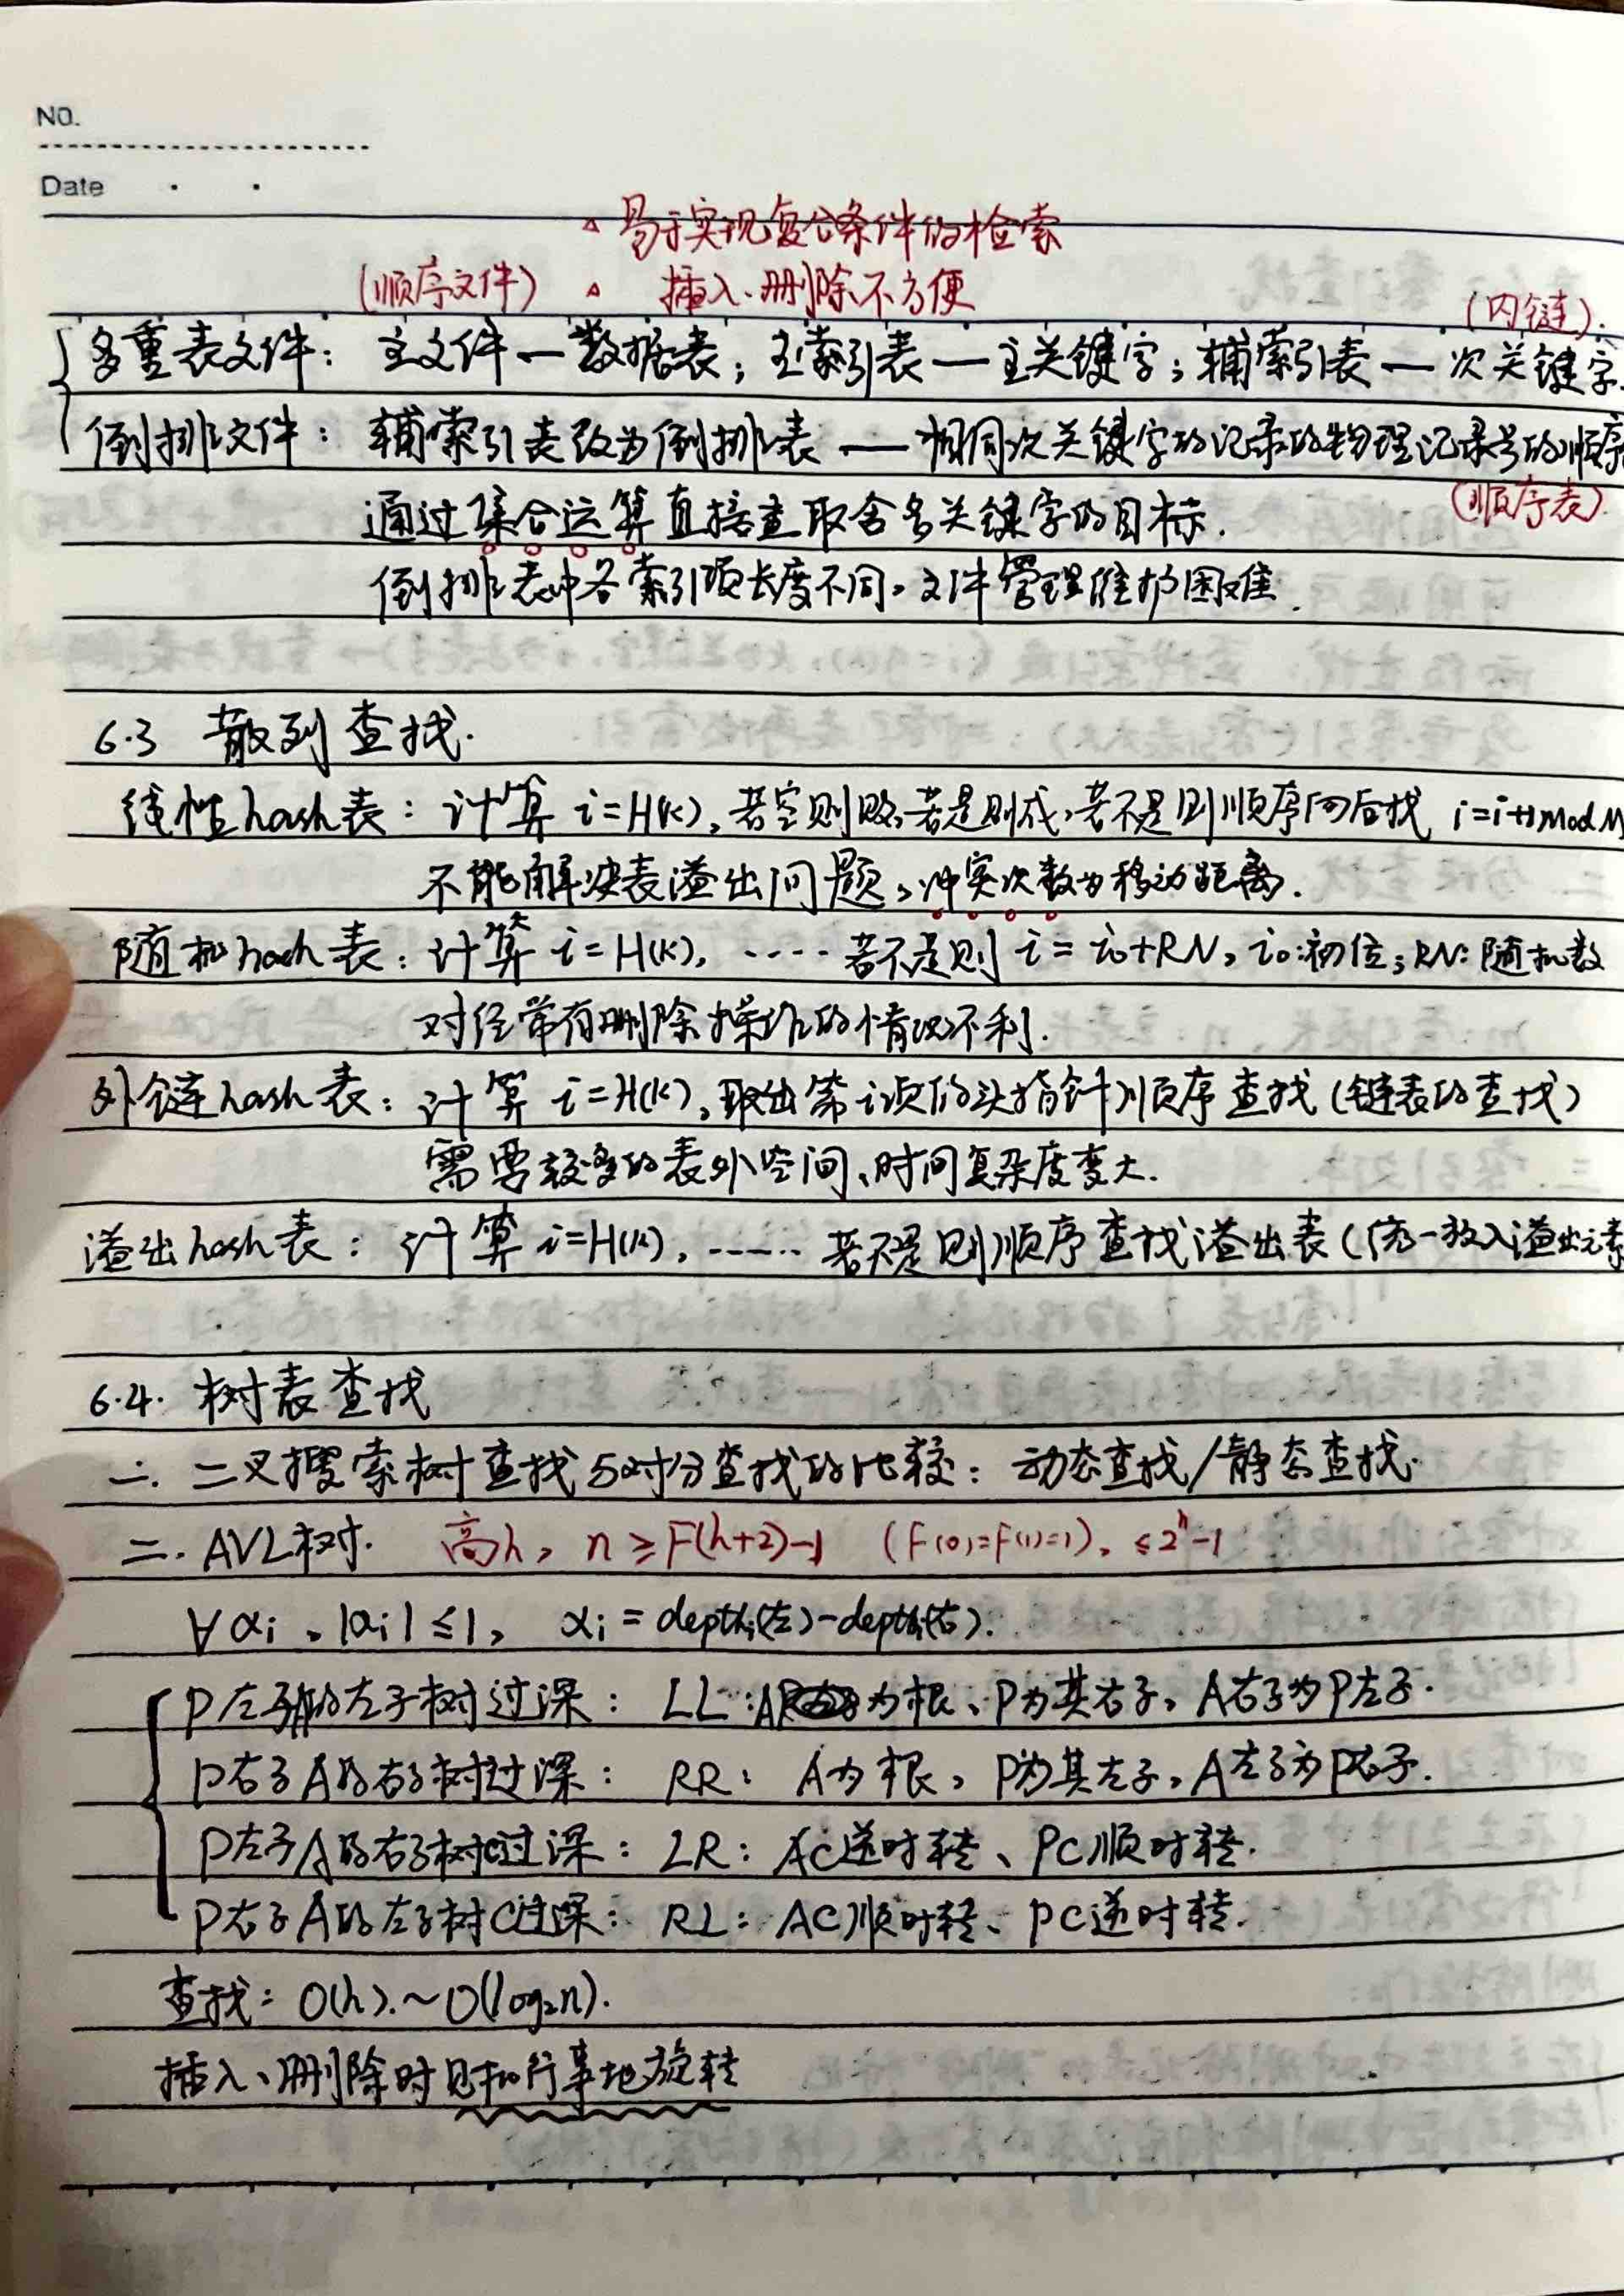 NO.
Date
△ 易于实现复合条件的检索
(顺序文件) △ 插入、删除不方便
(内链).
多重表文件：主文件—数据表；主索引表—主关键字；辅索引表—次关键字.
倒排文件：辅索引表改为倒排表——相同次关键字的记录的物理记录号的顺序
(顺序表).
通过集合运算直接查取含多关键字的目标.
倒排表中各索引项长度不同，文件管理维护困难.
6.3 散列查找.
线性hash表：计算 i=H(k)，若空则败，若是则成，若不是则顺序向后找 i=i+1 mod M
不能解决表溢出问题，冲突次数为移动距离.
随机hash表：计算 i=H(k)，…… 若不是则 i=i₀+RN，i₀:初位；RN:随机数
对经常有删除操作的情况不利.
外链hash表：计算 i=H(k)，取出第i项的头指针顺序查找(链表的查找)
需要较多的表外空间、时间复杂度变大.
溢出hash表：计算 i=H(k)，…… 若不是则顺序查找溢出表(统一放入溢出元素
6.4. 树表查找
一. 二叉搜索树查找与对分查找的比较：动态查找/静态查找.
二. AVL树. 高h，n≥F(h+2)-1 (F(0)=F(1)=1)，≤2ʰ-1
∀αi，|αi|≤1，αi=depthi(左)-depthi(右).
P左子A的左子树过深：LL：A为根、P为其右子，A右子为P左子.
P右子A的右子树过深：RR：A为根，P为其左子，A左子为P右子.
P左子A的右子树C过深：LR：AC逆时转、PC顺时转.
P右子A的左子树C过深：RL：AC顺时转、PC逆时转.
查找：O(h).~O(log₂n).
插入、删除时见机行事地旋转